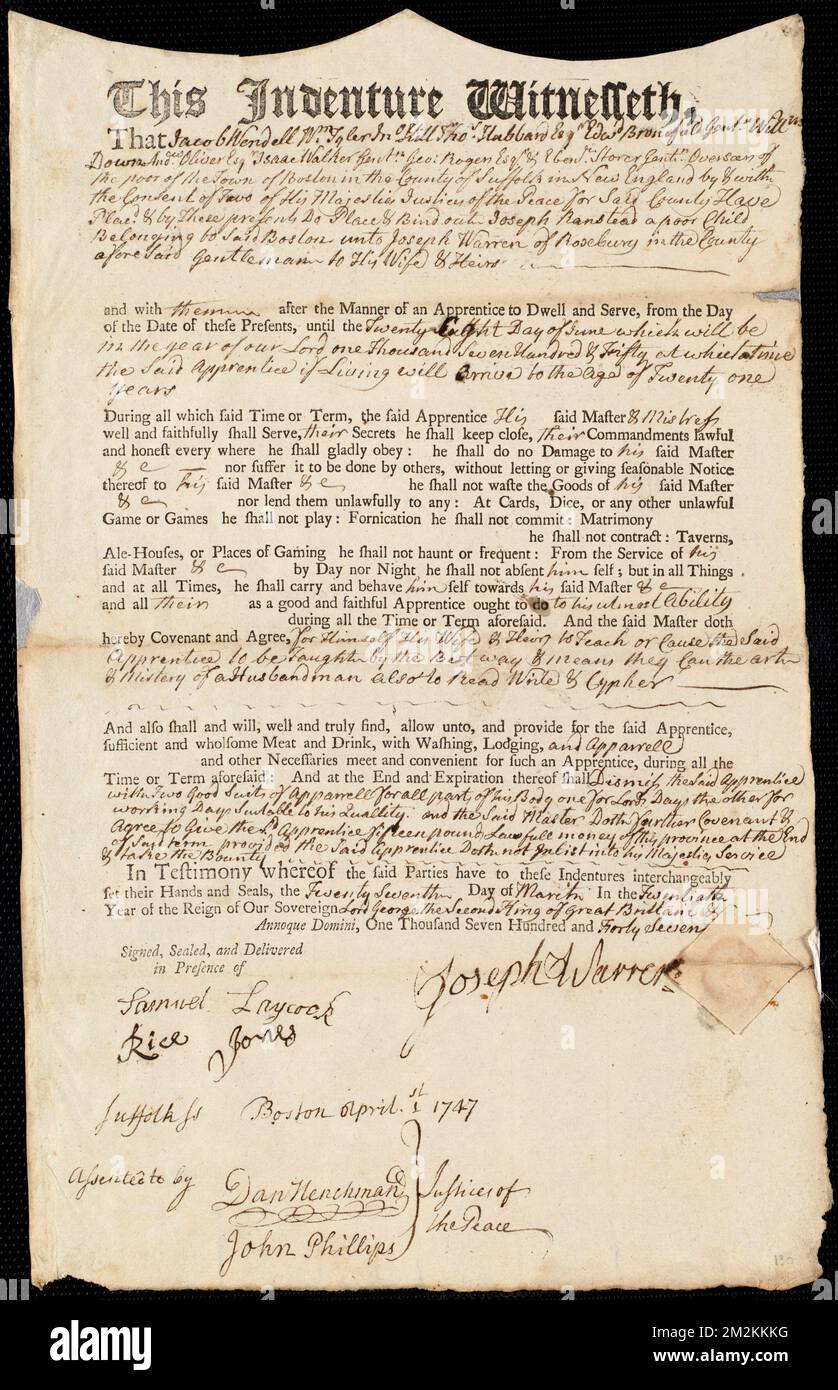 This Indenture Witnesseth,
That Jacob Wendell Wm Tyler Jno Hill Thos. Hubbard Esqrs Edwd Bromfield Gentn Willm
Down Andw Oliver Esqr Isaac Walker Gentn Geo: Rogers Esqr & Ebenr Storer Gentn. Overseers of
the poor of the Town of Boston in the County of Suffolk in New England by & with
the Consent of Two of His Majesties Justices of the Peace for Said County Have
Placed & by these presents Do Place & Bind out Joseph Ranstead a poor Child
Belonging to Said Boston unto Joseph Warren of Roxbury in the County
aforesaid Gentleman to His Wife & Heirs
and with them after the Manner of an Apprentice to Dwell and Serve, from the Day
of the Date of these Presents, until the Twenty Eight Day of June which will be
in the year of our Lord one Thousand Seven Hundred & Fifty at which time
the Said Apprentice if Living will arrive to the age of Twenty one
years
During all which said Time or Term, the said Apprentice His said Master & Mistress
well and faithfully shall Serve, their Secrets he shall keep close, their Commandments lawful
and honest every where he shall gladly obey: he shall do no Damage to his said Master
& c nor suffer it to be done by others, without letting or giving seasonable Notice
thereof to his said Master & c he shall not waste the Goods of his said Master
& c nor lend them unlawfully to any: At Cards, Dice, or any other unlawful
Game or Games he shall not play: Fornication he shall not commit: Matrimony
he shall not contract: Taverns,
Ale-Houses, or Places of Gaming he shall not haunt or frequent: From the Service of his
said Master & c by Day nor Night he shall not absent him self; but in all Things
and at all Times, he shall carry and behave him self towards his said Master & c
and all their as a good and faithful Apprentice ought to do to his utmost Ability
during all the Time or Term aforesaid. And the said Master doth
hereby Covenant and Agree, for Himself His Wife & Heirs to Teach or Cause the Said
Apprentice to be Taught by the Best way & means they Can the arte
& Mistery of a Husbandman also to Read Write & Cypher
And also shall and will, well and truly find, allow unto, and provide for the said Apprentice,
sufficient and wholsome Meat and Drink, with Washing, Lodging, and Apparrell
and other Necessaries meet and convenient for such an Apprentice, during all the
Time or Term aforesaid: And at the End and Expiration thereof shall Dismiss the Said Apprentice
with Two Good Suits of Apparrell for all parts of his Body one for Lords Days the other for
working Days Sutable to his Quallity. and the Said Master Doth further Covenant &
Agree to Give the Sd Apprentice fifteen pounds Lawfull money of this province at the End
of Said term provided the Said Apprentice Doth not Inlist into his Majesties Service
& take the Bounty
In Testimony whereof the said Parties have to these Indentures interchangeably
set their Hands and Seals, the Twenty Seventh Day of March In the Twentieth
Year of the Reign of Our Sovereign Lord George the Second King of Great Brittain &c
Annoque Domini, One Thousand Seven Hundred and Forty Seven
Signed, Sealed, and Delivered
in Presence of
Joseph Warren
Samuel Laycock
Rice Jones
Suffolk ss Boston April. 1st 1747
Assented to by
Dan Henchman
John Phillips
Justices of
the Peace
alamy
Image ID: 2M2KKKG
www.alamy.com